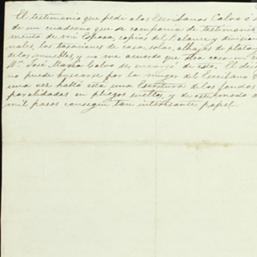 El testimonio que pedi a los Escribanos Calvo ó
de un cuaderno que se componia de testimonio
mento de mi Esposa, copias del Balance y division
nales, las tasaciones de casa, solar, alhajas de plata y
de los muebles, y no me acuerdo que otra cosa
Dn. José Maria Calvo de esto. El
no puede buscarse por la muger del Escribano
una vez hasta esta una Escritura de los fundos
en pliegos sueltos, y
mil pesos conseguí tan interesante papel.